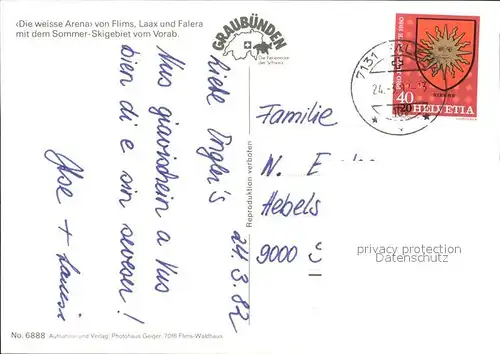 ‹Die weisse Arena› von Flims, Laax und Falera
mit dem Sommer-Skigebiet vom Vorab.
GRAUBÜNDEN
Die Ferienecke
der Schweiz
Liebe Engler's
24.3.82
Nus giavischein a Vus
bien di e sin seveser!
Ilse +
Reproduktion verboten
Familie
N. E
Hebels
9000 S
7131
24.
PRO JUVENTUTE 1980
40
+20
HELVETIA
privacy protection
Datenschutz
No. 6888 Aufnahme und Verlag: Photohaus Geiger, 7018 Flims-Waldhaus